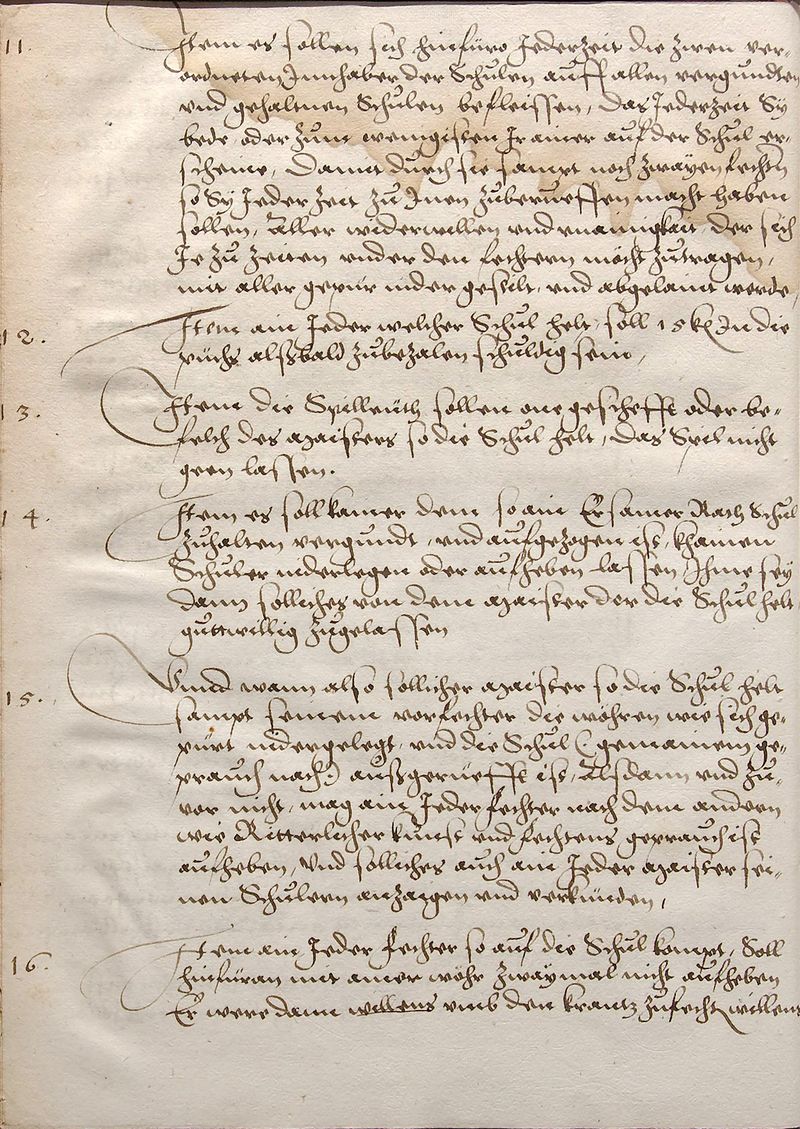 11. Item es sollen sich hinfüro Jederzeit die zwen ver-
ordneten Innhaber der Schůlen auff allen vergundten
vnd gehaltnen Schůlen befleissen, das Jederzeit Sy
bede oder zum wenigisten Ir ainer auf der Schůl er-
scheine, Damit durch sie sampt noch zwayen fechtn
so Sy Jeder Zeit zů Inen zuberueffen macht haben
sollen, Aller widerwillen vnd vnainigkait der sich
Je zů Zeiten vnder den fechtern möcht zůtragen,
mit aller gepür nider gestelt, vnd abgelaint werde,
12. Item ain Jeder welcher Schůl helt, soll 15 in die
püchs alßbald zůbezalen schuldig sein,
13. Item die Spilleüth sollen one geschefft oder be-
felch des Maisters so die Schůl helt, das Spil nicht
geen lassen.
14. Item es soll kainer dem so ain Ersamer Rath Schůl
zůhalten vergundt, vnd aufgezogen ist, khainen
Schůler niderlegen oder aufheben lassen, Ihme sey
dann solliches von dem Maister der die Schůl helt
gůttwillig zůgelassen
15. Vnnd wann also sollicher Maister so die Schůl helt
sampt seinem vorfechter die wöhren wie sich ge-
pürt nidergelegt, vnd die Schůl (gemainem ge-
prauch nach) außgerüefft ist, Alsdann vnd zů-
vor nicht, mag ain Jeder fechter nach dem andern
wie Ritterlicher kunst vnd fechtens geprauch ist
aufheben, Vnd solliches auch ain Jeder Maister sei-
nen Schůlern anzaigen vnd verkünden,
16. Item ain Jeder fechter so auf die Schůl kompt, Soll
hinfüran mit ainer wöhr zwaymal nicht aufheben
Er were dann willens vmb den krantz zůfechtn willens